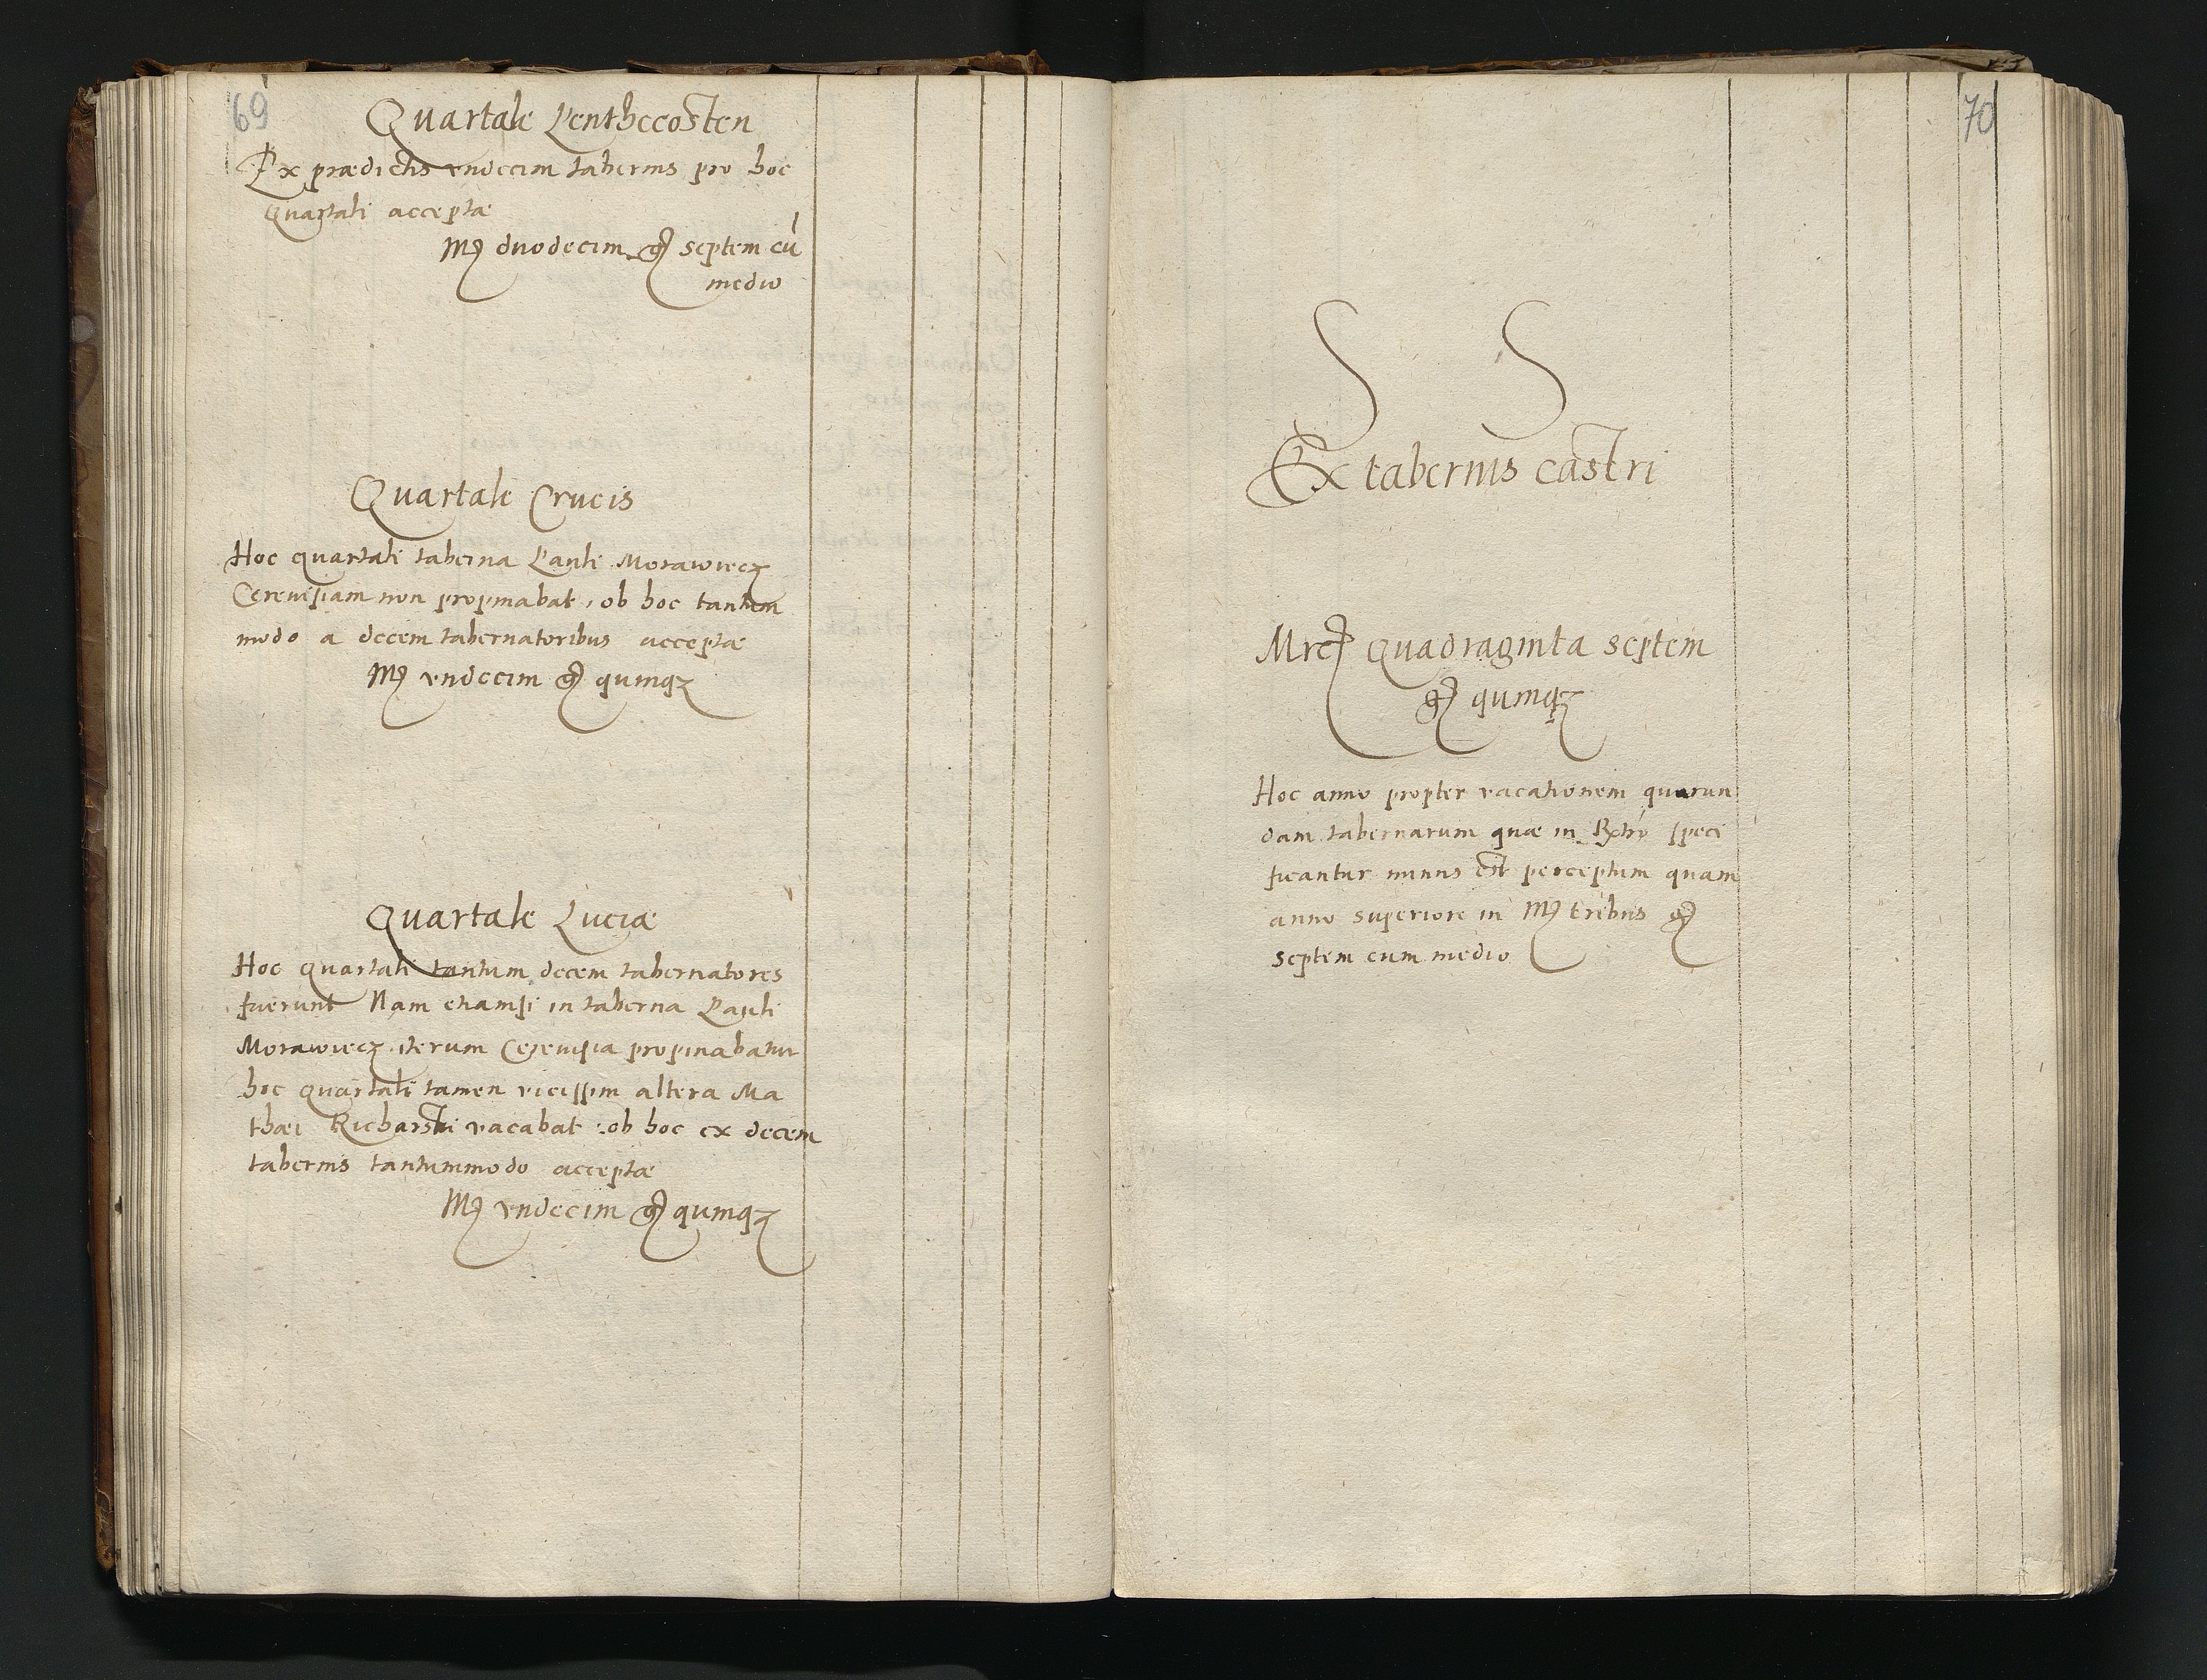 69
Quartale Penthecosten
Ex prædictis vndecim tabernis pro hoc
Quartali acceptæ
Mȝ duodecim gȝ septem cū
medio
Quartale Crucis
Hoc quartali taberna Pauli Morawiecz
Cereuisiam non propinabat, ob hoc tantum
modo a decem tabernatoribus acceptæ
Mȝ vndecim gȝ quinqȝ
Quartale Luciæ
Hoc quartali tantum decem tabernatores
fuerunt Nam etiamsi in taberna Pauli
Morawiecz iterum Cereuisia propinabatur
hoc quartali tamen vicissim altera Ma
thæi Richarski vacabat: ob hoc ex decem
tabernis tantummodo acceptæ
Mȝ vndecim gȝ quinqȝ
70
S S
Ex tabernis castri
Mrcȝ Quadraginta septem
gȝ quinqȝ
Hoc anno propter vacationem quarun
dam tabernarum quæ in Rxtro speci
ficantur minus est perceptum quam
anno superiore in Mȝ tribus gȝ
septem cum medio